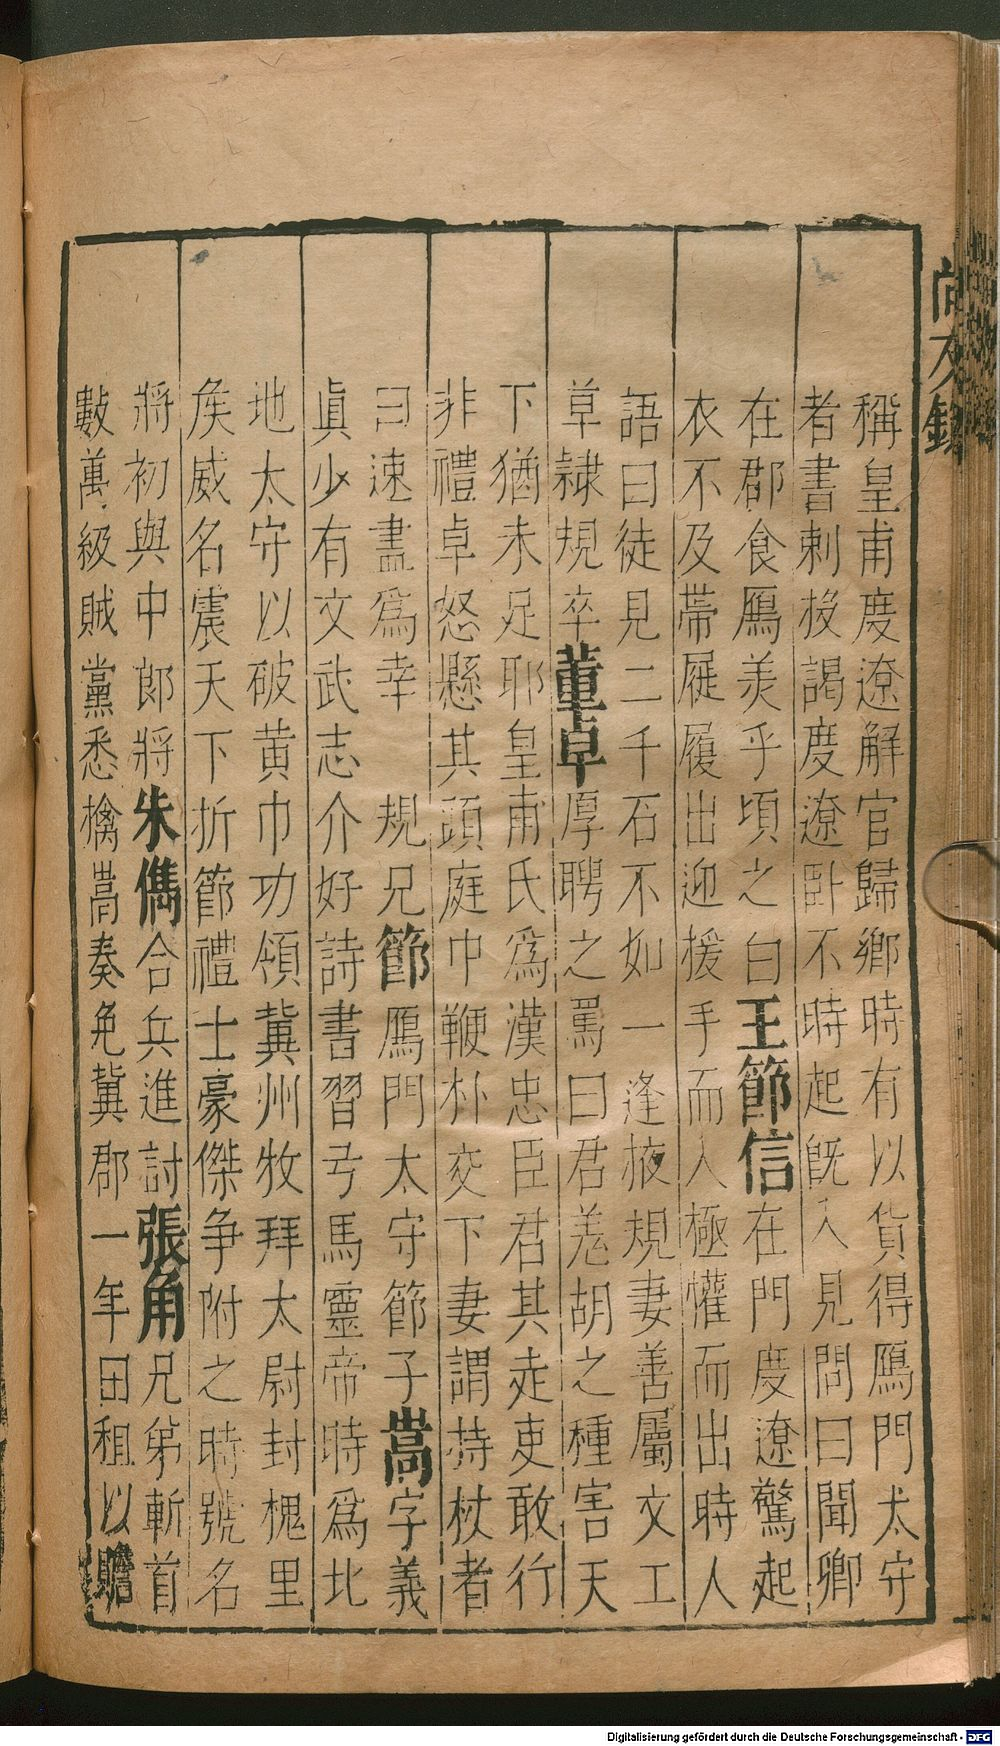 稱皇甫度遼解官歸鄉時有以貨得鴈門太守
者書刺投謁度遼臥不時起旣入見問曰聞卿
在郡食鴈美乎頃之白王節信在門度遼驚起
衣不及帶屣履出迎援手而入極懽而出時人
語曰徒見二千石不如一逢掖規妻善屬文工
草隷規卒董卓厚聘之罵曰君羗胡之種害天
下猶未足耶皇甫氏爲漢忠臣君其走吏敢行
非禮卓怒懸其頭庭中鞭朴交下妻謂持杖者
曰速盡爲幸　規兄節鴈門太守節子嵩字義
眞少有文武志介好詩書習弓馬靈帝時爲北
地太守以破黄巾功領冀州牧拜太尉封槐里
矦威名震天下折節禮士豪傑争附之時號名
將初與中郎將朱儁合兵進討張角兄弟斬首
數萬級賊黨悉擒嵩奏免冀郡一年田租以贍
尚友錄
Digitalisierung gefördert durch die Deutsche Forschungsgemeinschaft - DFG